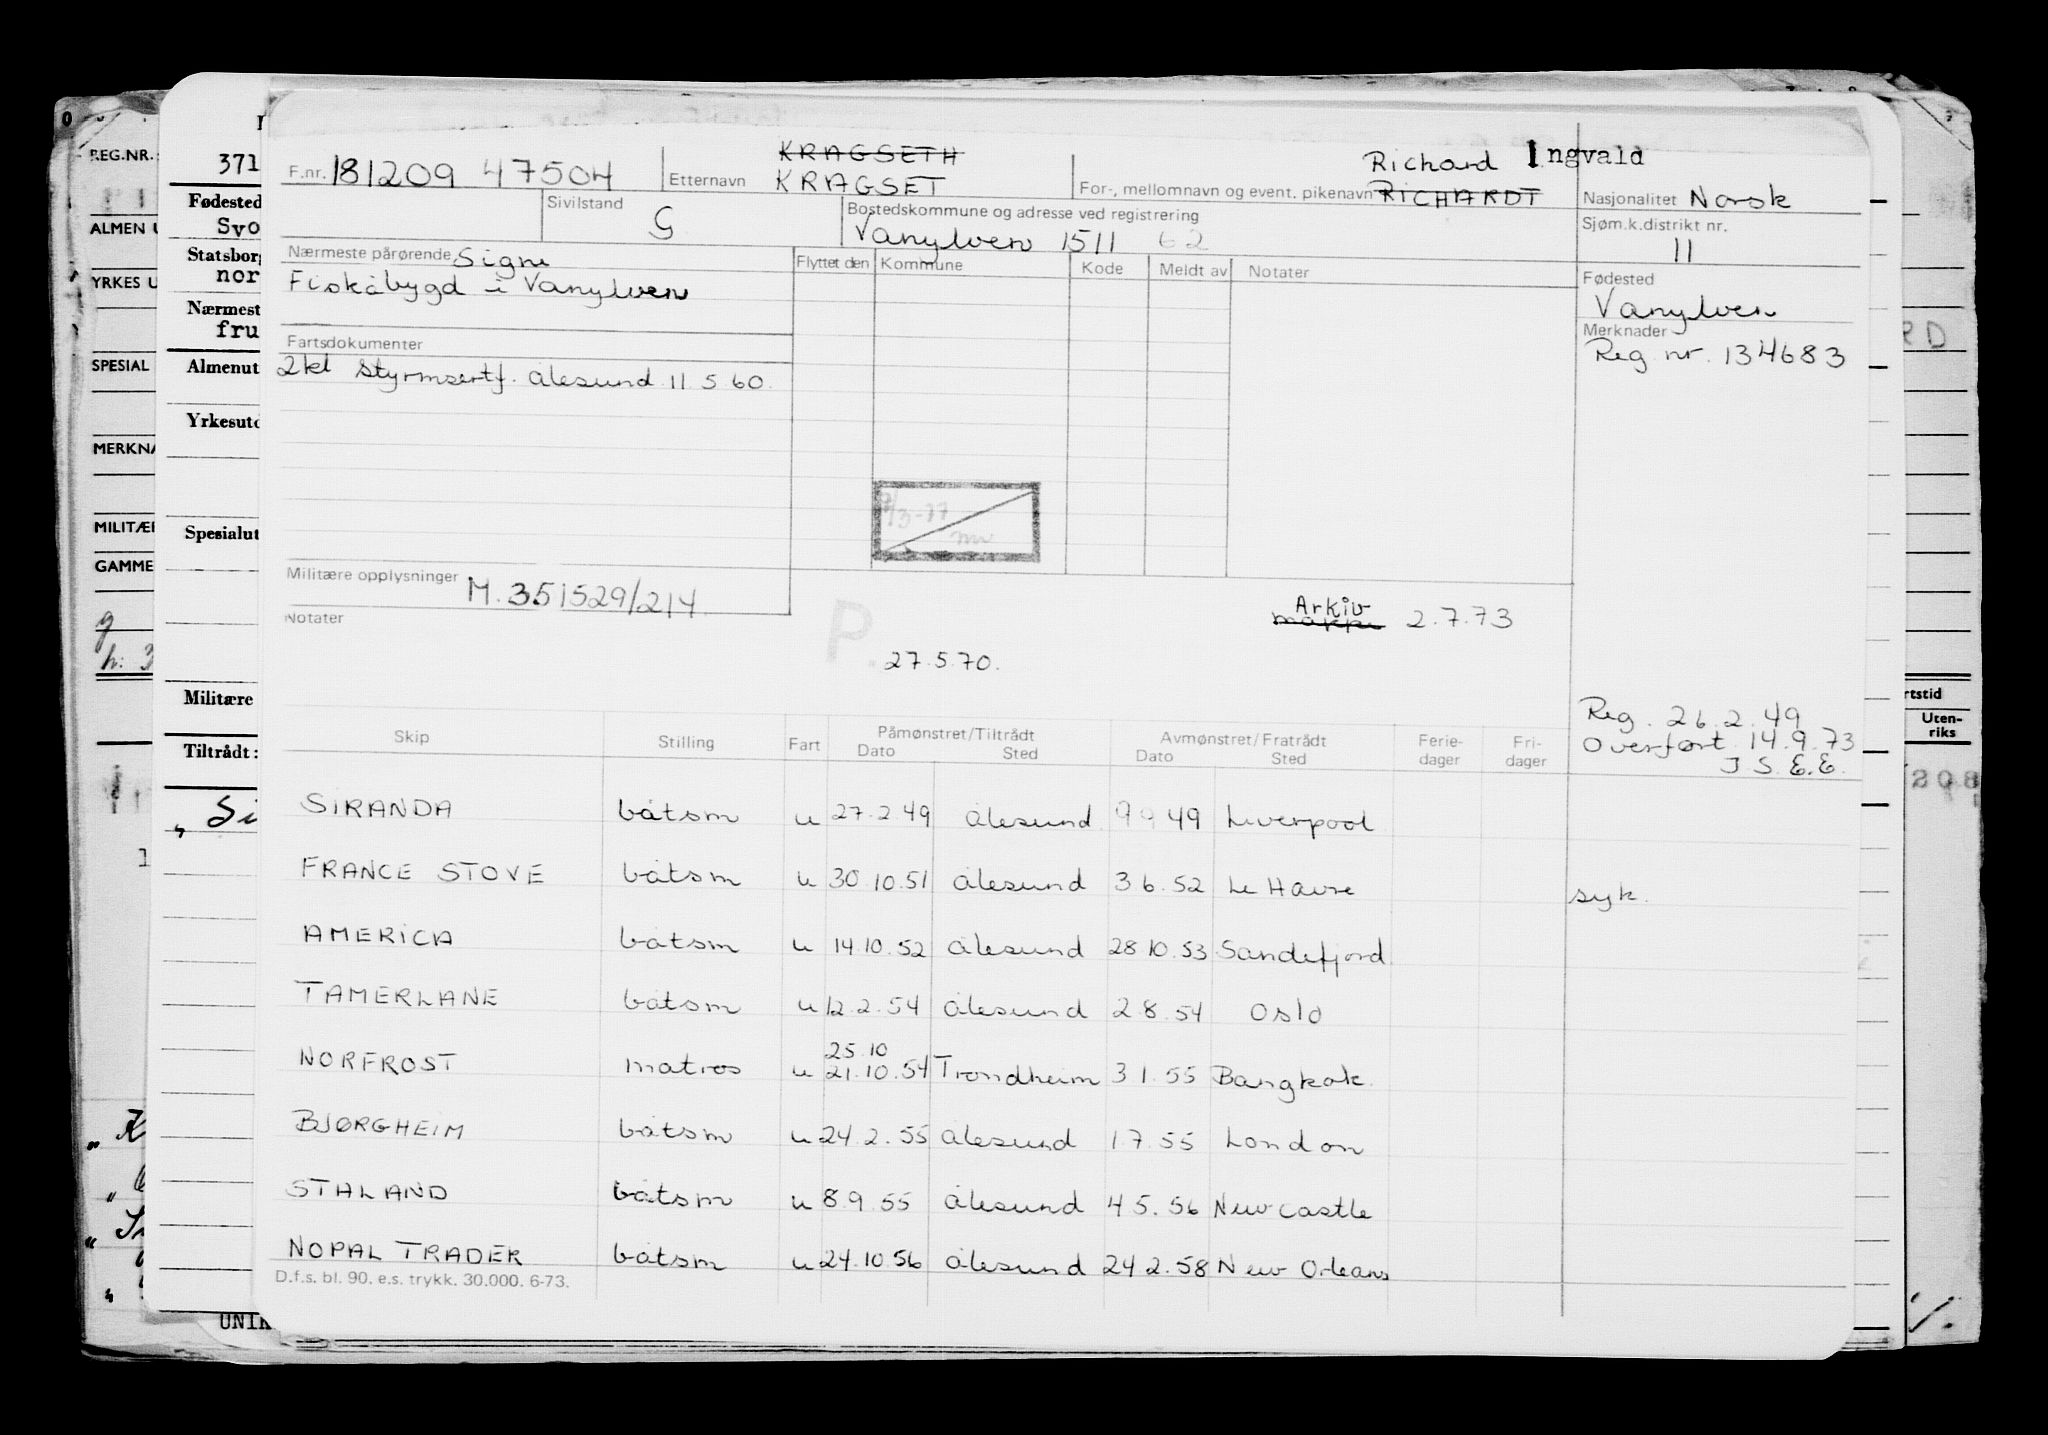 REG.NR.
371
F.nr. 181209 47504
Etternavn
KRAGSETH
KRAGSET
For-, mellomnavn og event. pikenavn
Richard Ingvald
RICHARDT
Nasjonalitet Norsk
Fødested
Svo
Sivilstand
G
Bostedskommune og adresse ved registrering
Vanylven 1511 62
Sjøm.k.distrikt nr.
11
ALMEN U
Statsborg
nor
Nærmeste pårørende Signe
Fiskåbygd i Vanylven
Flyttet den Kommune Kode Meldt av Notater
Fødested
Vanylven
YRKES U
Nærmest
fru
Merknader
Reg nr. 134683
RD
Fartsdokumenter
2kl styrmsertf. Ålesund 11 5 60.
SPESIAL
Almenut
Yrkesutd
MERKNA
MILITÆR
Spesialut
GAMME
Militære opplysninger M. 351529/214
Notater
P.
27.5.70.
Arkiv
2.7.73
Militære
Tiltrådt:
Reg. 26.2.49
Overført 14.9.73
J S. E.E.
rtstid
Uten-
riks
Skip Stilling Fart Påmønstret/Tiltrådt Avmønstret/Fratrådt Ferie- Fri-
Dato Sted Dato Sted dager dager
SIRANDA båtsm u 27.2.49 Ålesund 9 9 49 Liverpool
FRANCE STOVE båtsm u 30.10.51 Ålesund 3 6.52 Le Havre syk.
AMERICA båtsm u 14.10.52 Ålesund 28 10.53 Sandefjord
TAMERLANE båtsm u 12.2.54 Ålesund 2.8.54 Oslo
25.10
NORFROST matros u 21.10.54 Trondheim 3 1.55 Bangkok.
BJØRGHEIM båtsm u 24.2.55 Ålesund 1.7.55 London
STALAND båtsm u 8.9.55 Ålesund 4 5.56 New Castle
NOPAL TRADER båtsm u 24.10.56 Ålesund 24 2.58 New Orleans
D.f.s. bl. 90. e.s. trykk. 30.000. 6-73.
UNIK